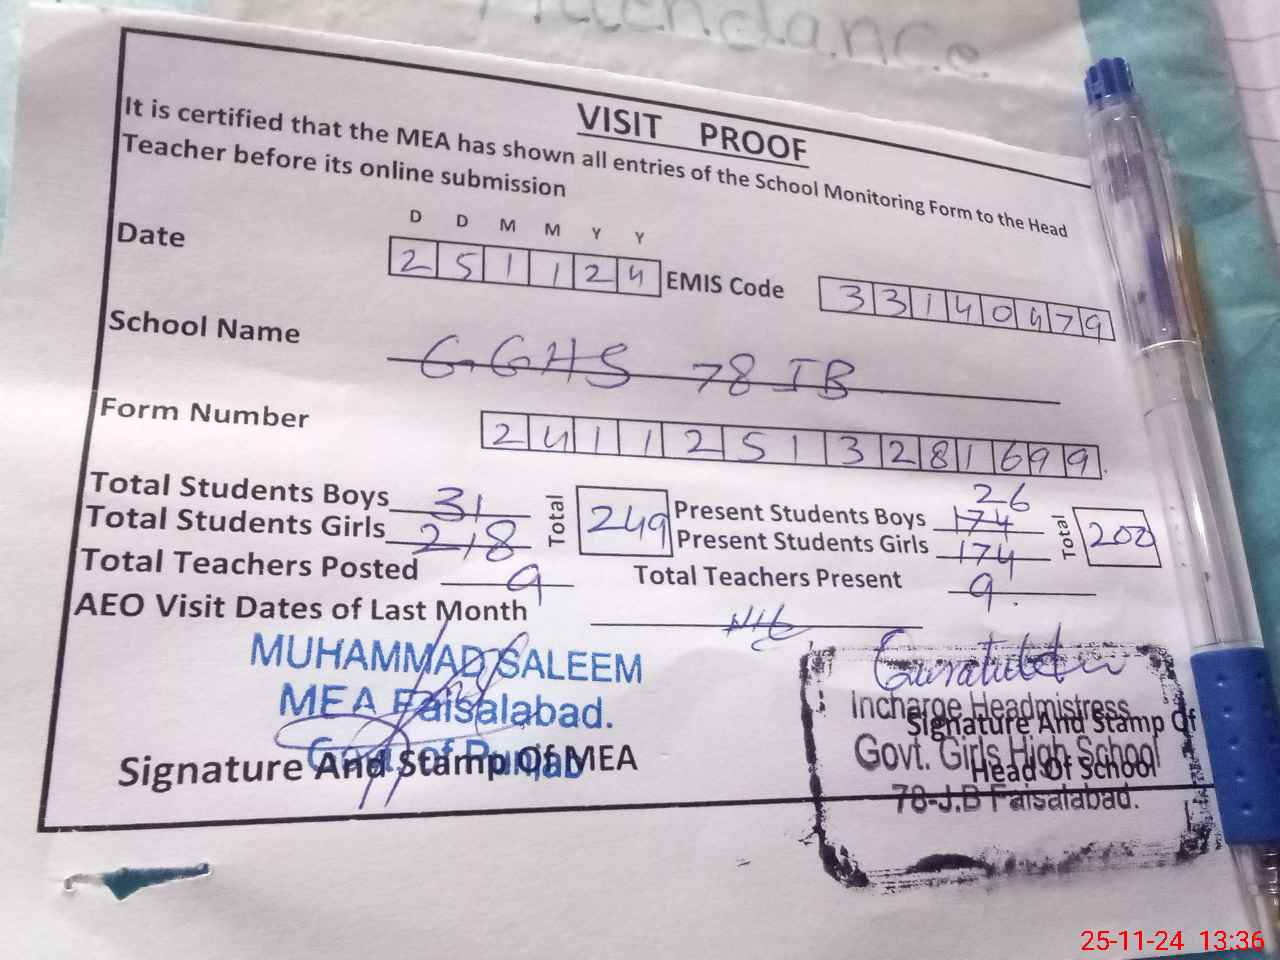 Attendance.
VISIT PROOF
It is certified that the MEA has shown all entries of the School Monitoring Form to the Head
Teacher before its online submission
D D M M Y Y
Date 2 5 1 1 2 4 EMIS Code 3 3 1 4 0 4 7 9
School Name G.GHS 78 JB
Form Number 2 4 1 1 2 5 1 3 2 8 1 6 9 9.
Total Students Boys 31 Total 249 Present Students Boys 174 26 Total 200
Total Students Girls 218 Present Students Girls 174
Total Teachers Posted 9 Total Teachers Present 9.
AEO Visit Dates of Last Month Nil
MUHAMMAD SALEEM
MEA Faisalabad.
Govt. of Punjab
Signature And Stamp Of MEA
Incharge Headmistress
Signature And Stamp Of
Govt. Girls High School
Head Of School
78-J.B Faisalabad.
25-11-24 13:36